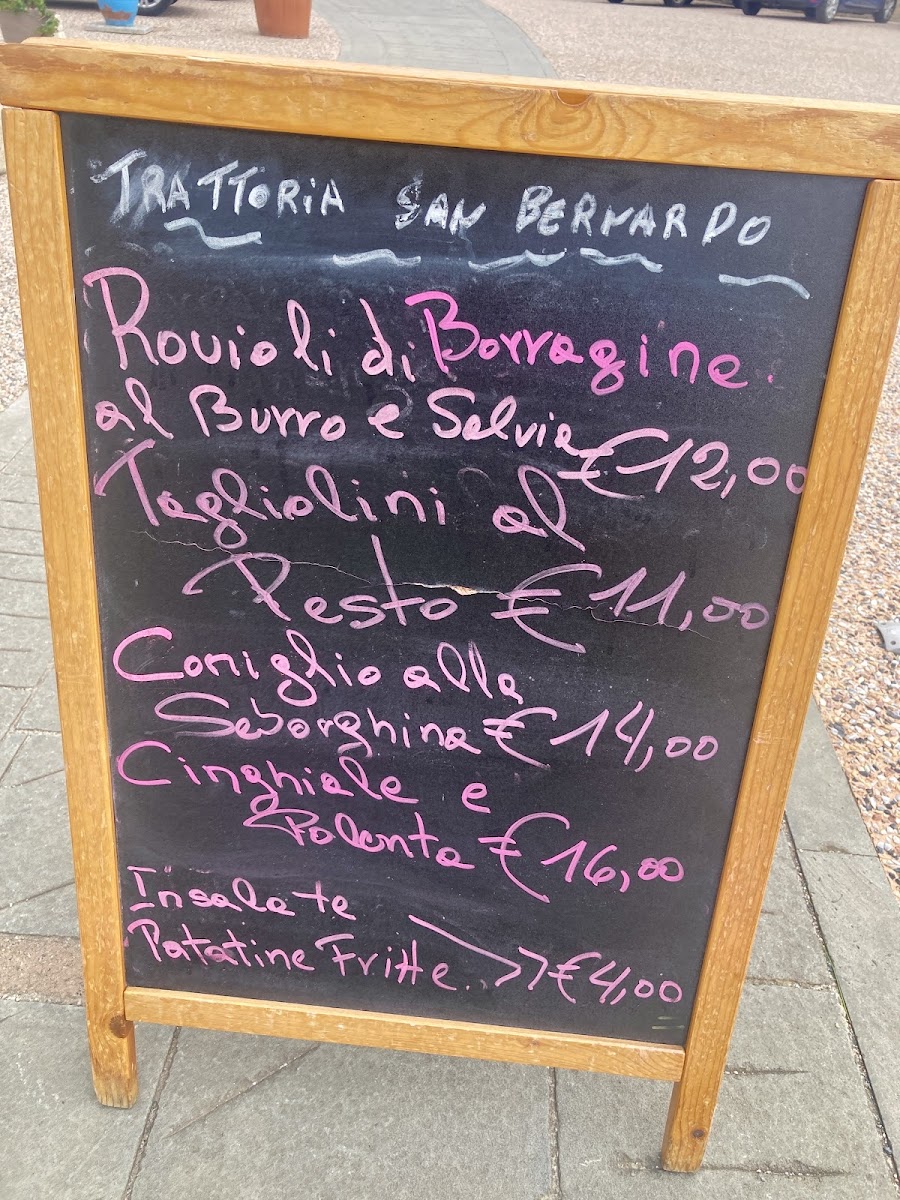 TRATTORIA SAN BERNARDO
Ravioli di Borragine
al Burro e Salvia € 12,00
Tagliolini al
Pesto € 11,00
Coniglio alla
Seborghina € 14,00
Cinghiale e
Polenta € 16,00
Insalate
Patatine Fritte.. €4,00